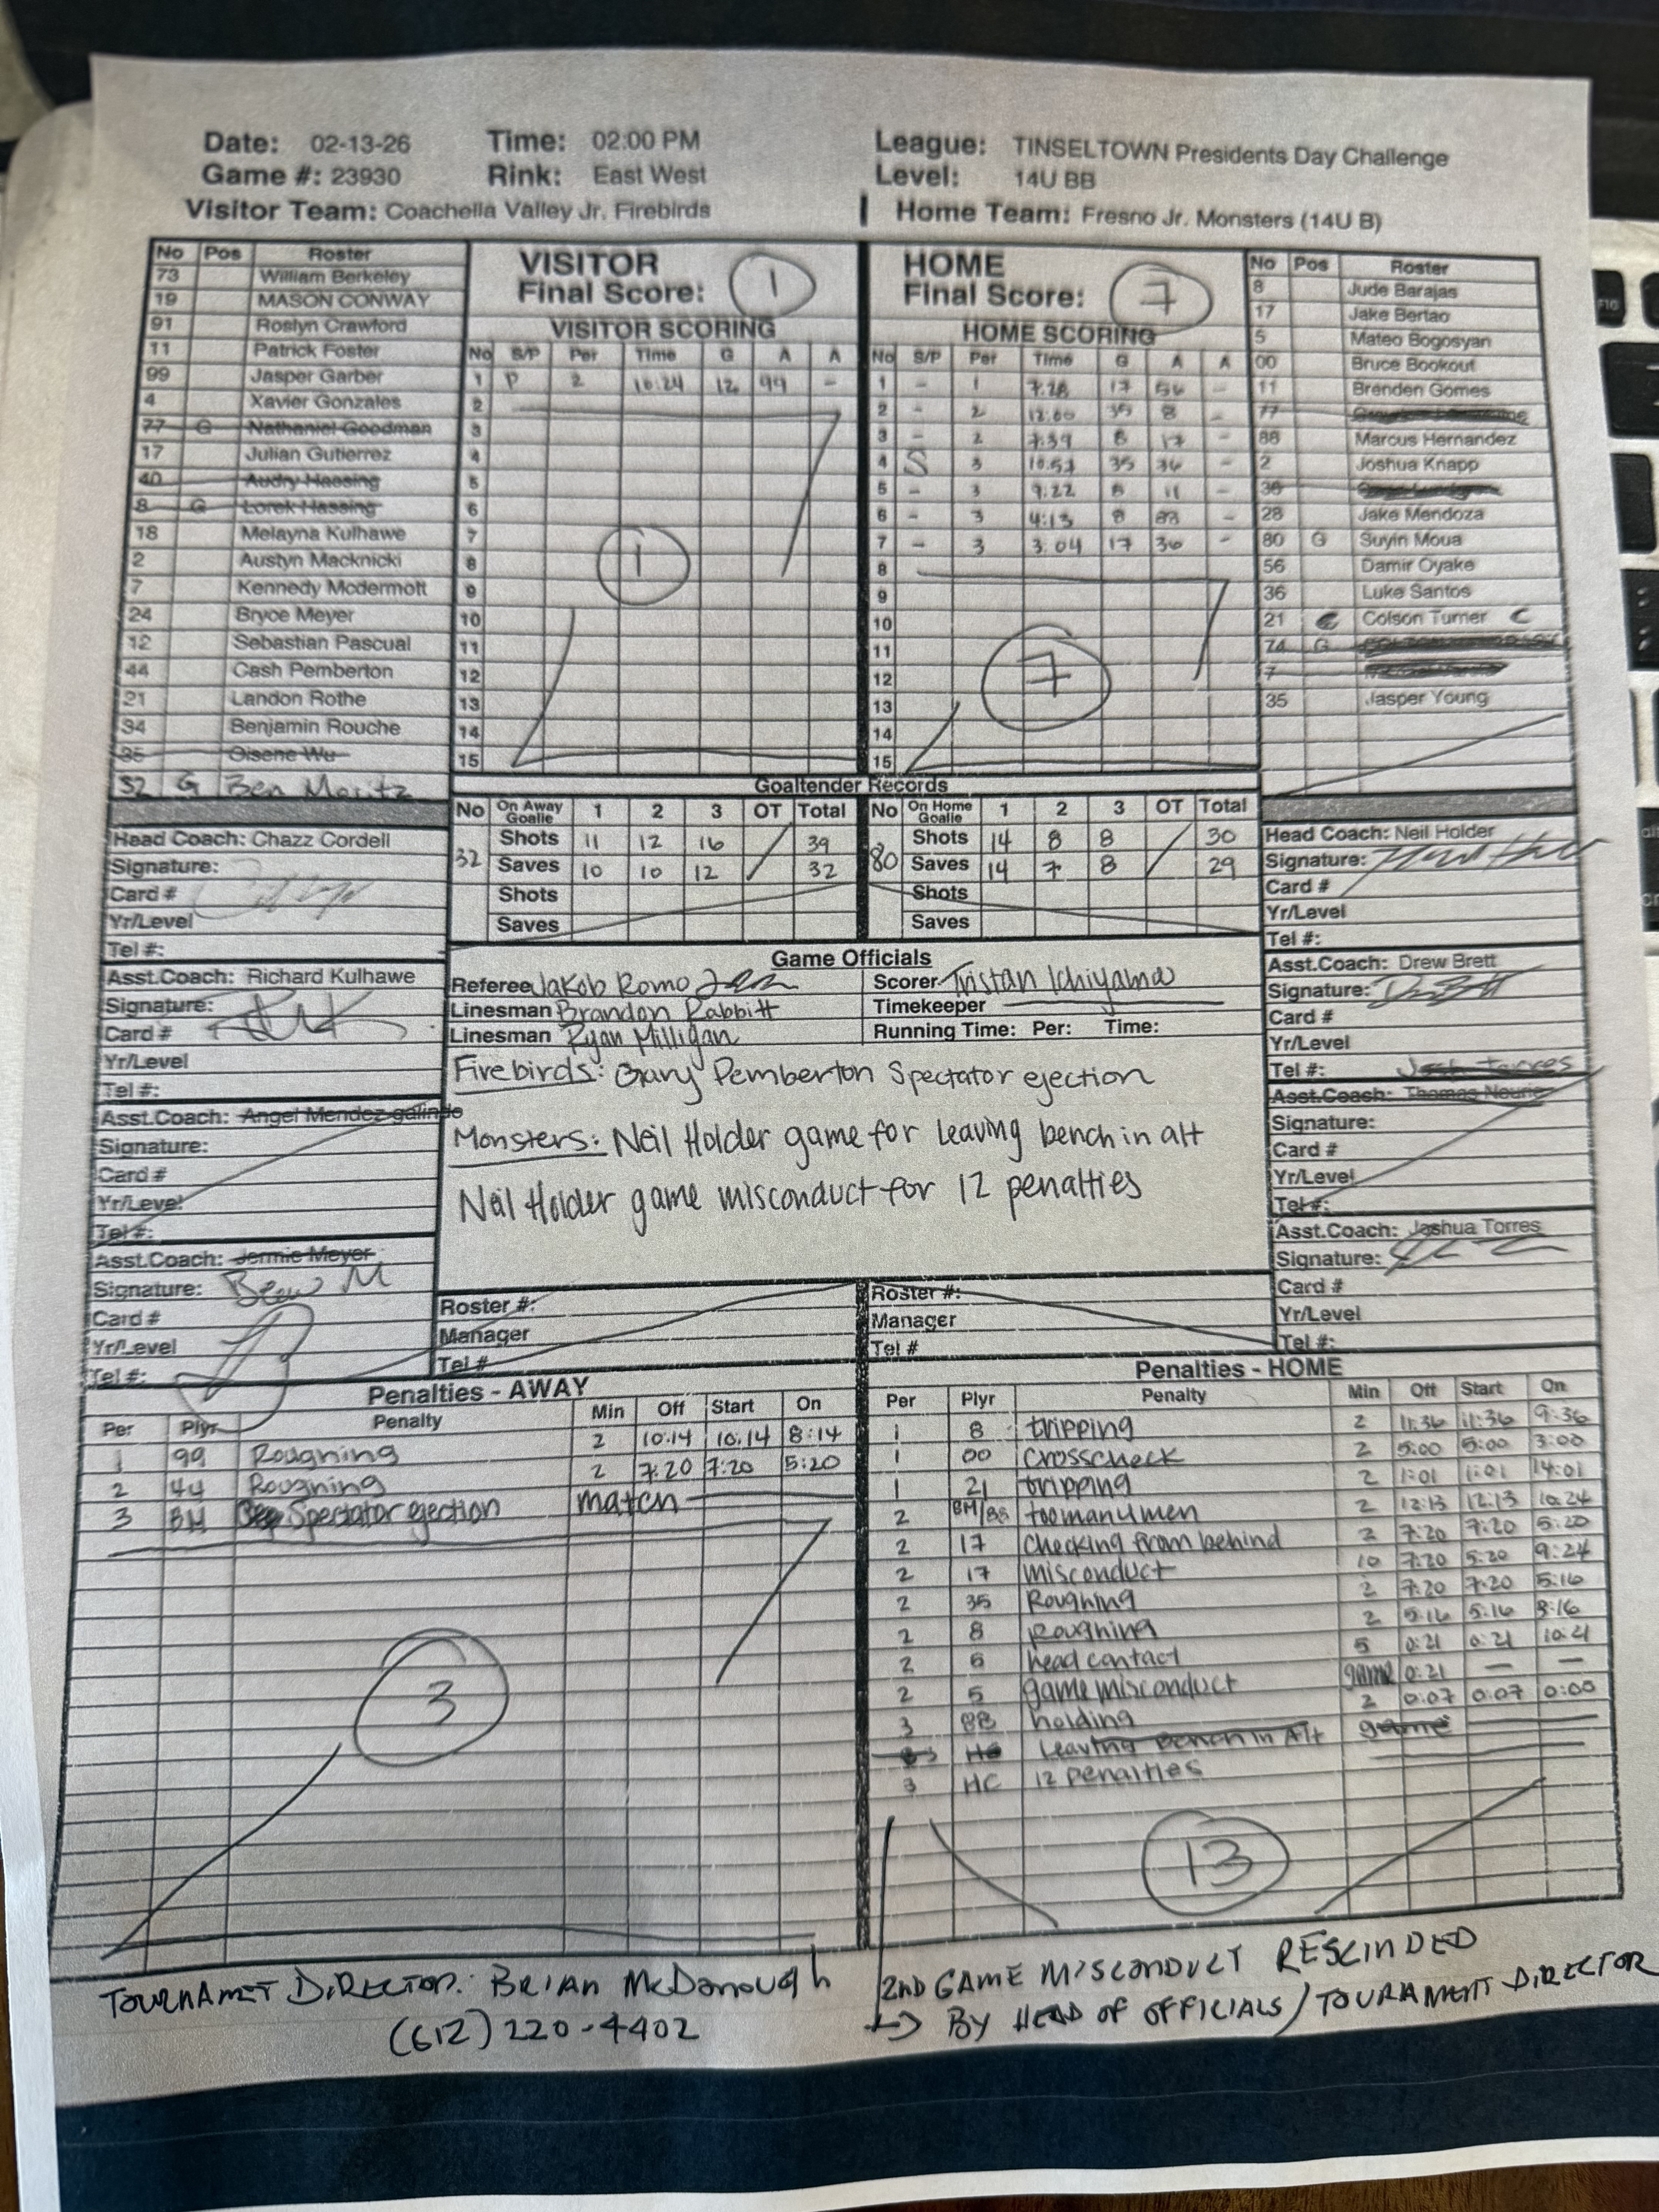 Date: 02-13-26 Time: 02:00 PM League: TINSELTOWN Presidents Day Challenge
Game #: 23930 Rink: East West Level: 14U BB
Visitor Team: Coachella Valley Jr. Firebirds Home Team: Fresno Jr. Monsters (14U B)
No Pos Roster
73 William Berkeley
19 MASON CONWAY
91 Roslyn Crawford
11 Patrick Foster
99 Jasper Garber
4 Xavier Gonzales
77 G Nathaniel Goodman
17 Julian Gutierrez
40 Audry Hassing
8 G Lorek Hassing
18 Melayna Kulhawe
2 Austyn Macknicki
7 Kennedy Mcdermott
24 Bryce Meyer
12 Sebastian Pascual
44 Cash Pemberton
21 Landon Rothe
34 Benjamin Rouche
35 Oisene Wu
32 G Ben Moritz
VISITOR
Final Score: 1
VISITOR SCORING
No S/P Per Time G A A
1 P 2 10:24 12 99 -
2
3
4
5
6
7
8
9
10
11
12
13
14
15
1
HOME
Final Score: 7
HOME SCORING
No S/P Per Time G A A
1 - 1 7:28 17 56 -
2 - 2 12:00 35 8 -
3 - 2 7:39 8 17 -
4 S 3 10:53 35 36 -
5 - 3 9:22 8 11 -
6 - 3 4:13 8 88 -
7 - 3 3:04 17 36 -
8
9
10
11
12
13
14
15
7
No Pos Roster
8 Jude Barajas
17 Jake Bertao
5 Mateo Bogosyan
00 Bruce Bookout
11 Brenden Gomes
77
88 Marcus Hernandez
2 Joshua Knapp
38
28 Jake Mendoza
80 G Suyin Moua
56 Damir Oyake
36 Luke Santos
21 Colson Turner C
74 G
7
35 Jasper Young
Goaltender Records
No On Away Goalie 1 2 3 OT Total
32 Shots 11 12 16 39
Saves 10 10 12 32
Shots
Saves
No On Home Goalie 1 2 3 OT Total
80 Shots 14 8 8 30
Saves 14 7 8 29
Shots
Saves
Head Coach: Chazz Cordell
Signature:
Card #
Yr/Level
Tel #:
Asst.Coach: Richard Kulhawe
Signature:
Card #
Yr/Level
Tel #:
Asst.Coach: Angel Mendez-galindo
Signature:
Card #
Yr/Level
Tel #:
Asst.Coach: Jermie Meyer
Signature:
Card #
Yr/Level
Tel #:
Game Officials
Referee Jakob Romo
Linesman Brandon Rabbitt
Linesman Ryan Milligan
Scorer Tristan Ichiyama
Timekeeper
Running Time: Per: Time:
Firebirds: Gary Pemberton Spectator ejection
Monsters: Neil Holder game for leaving bench in alt
Neil Holder game misconduct for 12 penalties
Roster #:
Manager
Tel #
Roster #:
Manager
Tel #
Head Coach: Neil Holder
Signature:
Card #
Yr/Level
Tel #:
Asst.Coach: Drew Brett
Signature:
Card #
Yr/Level
Tel #: Josh Torres
Asst.Coach: Thomas
Signature:
Card #
Yr/Level
Tel #:
Asst.Coach: Joshua Torres
Signature:
Card #
Yr/Level
Tel #:
Penalties - AWAY
Per Plyr Penalty Min Off Start On
1 99 Roughning 2 10:14 10:14 8:14
2 44 Roughning 2 7:20 7:20 5:20
3 BM Spectator ejection match
3
Penalties - HOME
Per Plyr Penalty Min Off Start On
1 8 tripping 2 11:36 11:36 9:36
1 00 crosscheck 2 5:00 5:00 3:00
1 21 tripping 2 1:01 1:01 14:01
2 BM/88 toomanymen 2 12:13 12:13 10:24
2 17 checking from behind 2 7:20 7:20 5:20
2 17 misconduct 10 7:20 5:20 9:24
2 35 Roughing 2 7:20 7:20 5:16
2 8 roughning 2 5:16 5:16 3:16
2 5 head contact 5 0:21 0:21 10:21
2 5 game misconduct game 0:21 — —
3 88 holding 2 0:07 0:07 0:00
3 HC Leaving bench in Alt game
3 HC 12 penalties
13
TOURNAMET DIRECTOR: BRIAN McDonough
(612) 220-4402
2ND GAME MISCONDUCT RESCINDED
→ BY HEAD OF OFFICIALS / TOURAMENT DIRECTOR